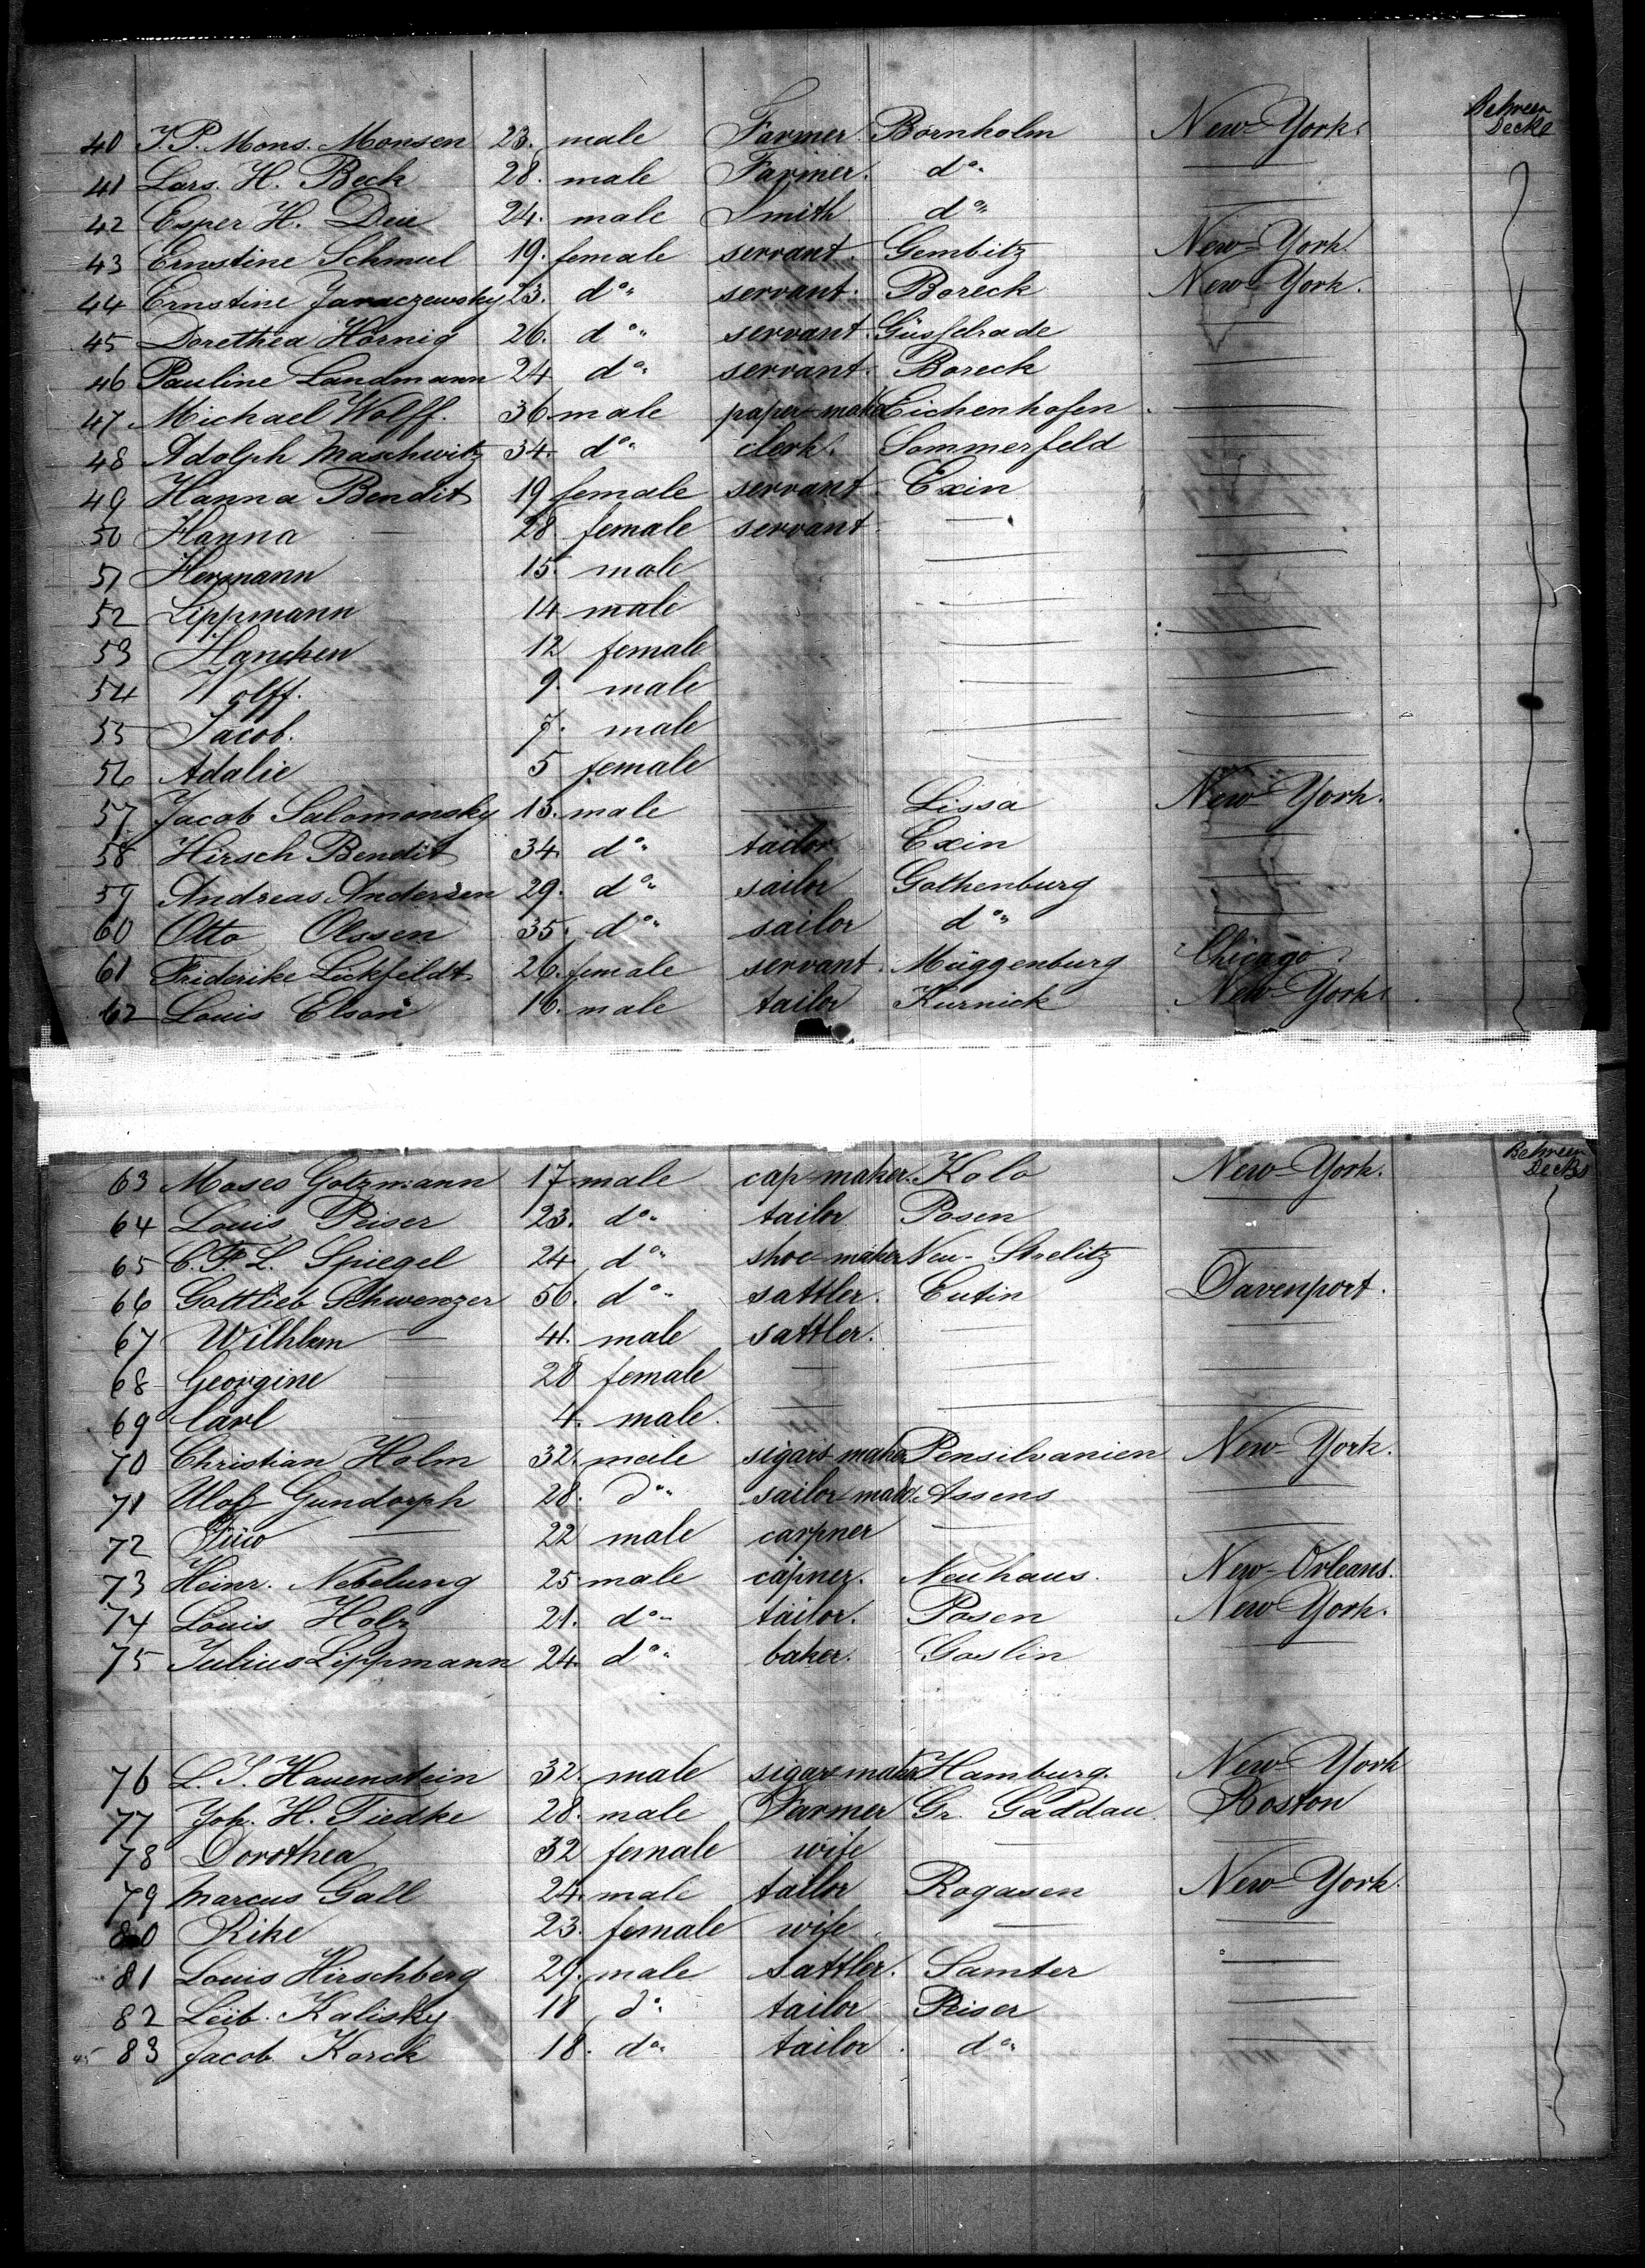 Between Decks
40 J. P. Mons. Monsen 23. male Farmer Bornholm New-York.
41 Lars. H. Beck 28. male Farmer. do.
42 Esper H. Due 24. male Smith do
43 Ernstine Schmul 19. female servant. Gembitz New-York.
44 Ernstine Jaraczewsky 23. do. servant. Boreck New-York.
45 Dorethea Hörnig 26. do. servant. Güsfelrade
46 Pauline Landmann 24 do. servant. Boreck
47 Michael Wolff. 36. male paper-maker Eichenhofen
48 Adolph Maschwitz 34. do. clerk. Sommerfeld
49 Hanna Bendit 19 female servant Exin
50 Hanna — 28 female servant. —
51 Hermann 15. male —
52 Lippmann 14 male —
53 Hanchen 12 female —
54 Wolff. 9. male —
55 Jacob. 7. male —
56 Adalie 5 female
57 Jacob Salomonsky 13. male — Lissa New-York.
58 Hirsch Bendit 34. do. tailor Exin
59 Andreas Andersen 29. do. sailor Gothenburg
60 Otto Olssen 35. do. sailor do.
61 Friderike Leckfeldt 26. female servant. Müggenburg Chicago.
62 Louis Elson 16. male tailor Kurnick New-York.
Between Decks
63 Moses Gotzmann 17 male cap-maker. Kolo New-York.
64 Louis Peiser 23. do. tailor Posen
65 C. F. L. Spiegel 24. do. shoe-maker Neu-Strelitz
66 Gottlieb Schwenzer 56. do. sattler. Eutin Davenport.
67 Wilhlem — 41. male sattler. —
68 Georgine — 28 female — —
69 Carl — 4. male. — —
70 Christian Holm 32. male sigars-maker Pensilvanien New-York.
71 Ulof Gundorph 28. do. sailor-mak. Assens
72 — 22 male carpner —
73 Heinr. Nebelung 25 male capner. Neuhaus. New-Orleans.
74 Louis Holz 21. do. tailor. Posen New York.
75 Julius Lippmann 24. do. baker. Goslin
76 L. S. Hauenstein 32. male sigars-maker Hamburg. New-York
77 Joh. H. Tiedke 28. male Farmer Gr. Gaddau Boston
78 Dorothea 32 female wife —
79 Marcus Gall 24. male tailor Rogasen New-York.
80 Rike 23. female wife —
81 Louis Hirschberg 29. male sattler. Samter
82 Leib. Kalisky 18 do. tailor Peiser
83 Jacob Korck 18. do. tailor. do.